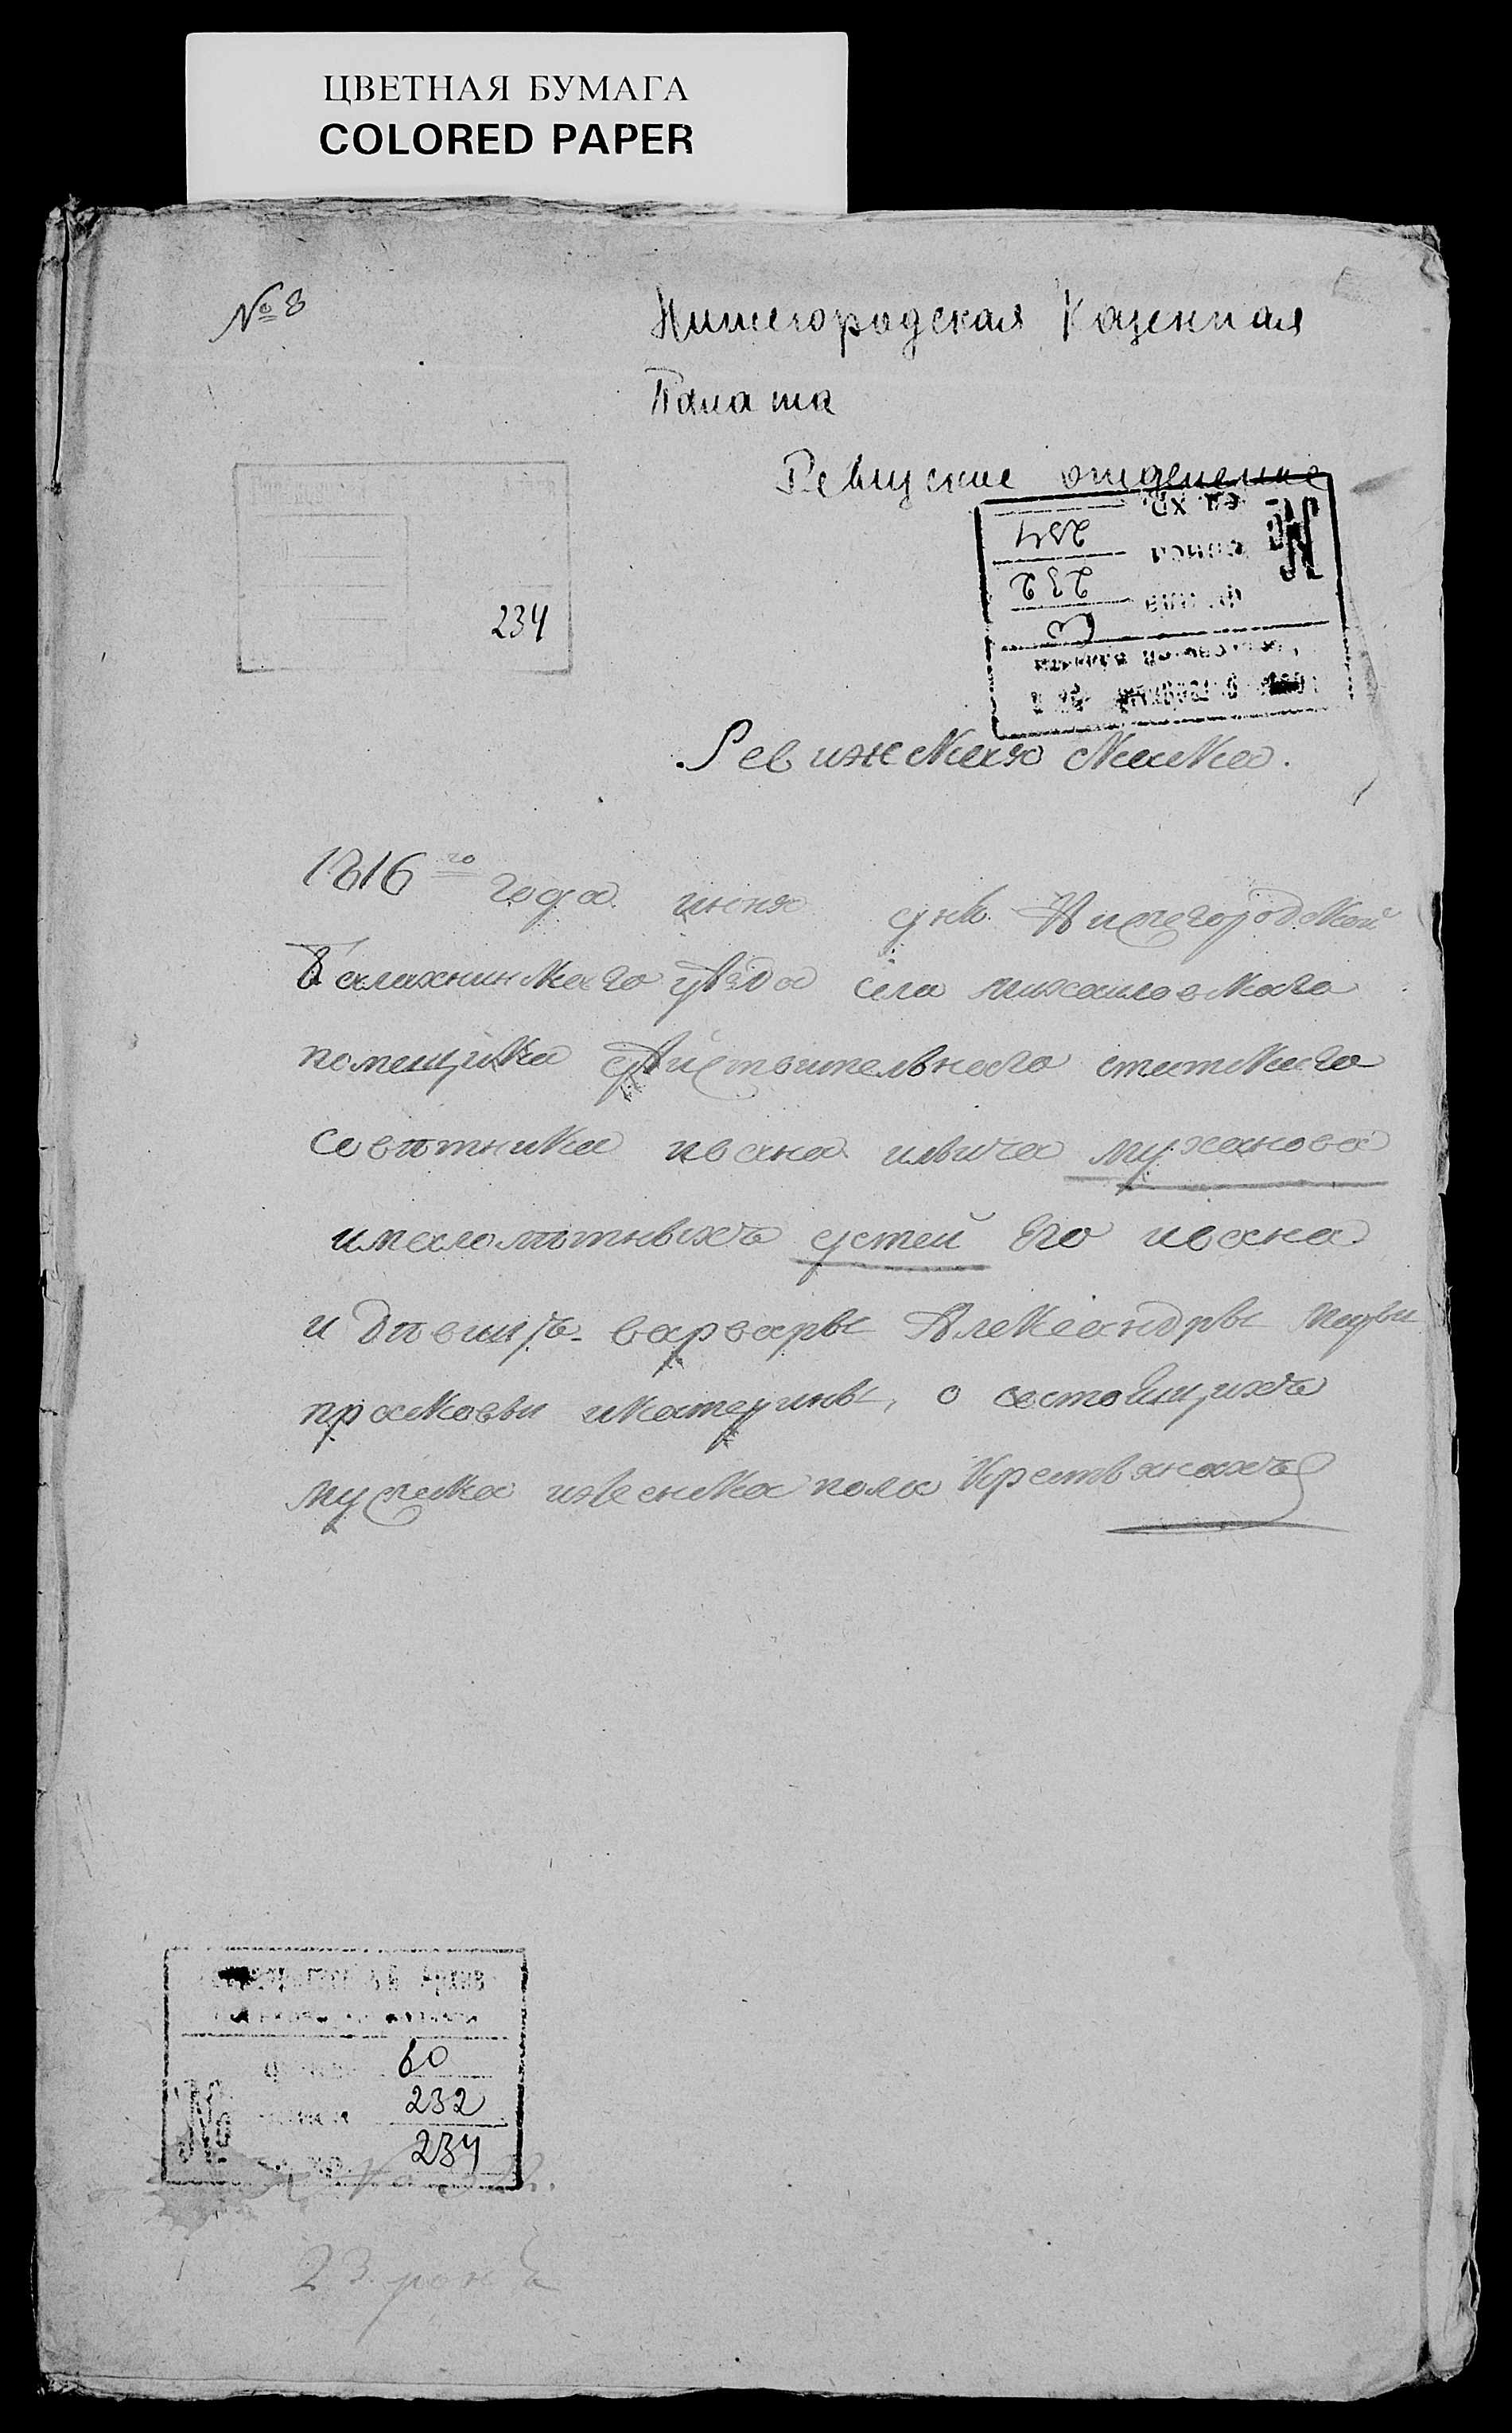 ЦВЕТНАЯ БУМАГА
COLORED PAPER
№ 8
Нижегородская Казенная
Палата
Ревизские отделение
234
ед. хр. 234
описи 232
№
Ревижская скаска.
1816го года июня дня Нижегородской
Балахнинскаго уѣзда села михаиловскаго
помещика дѣйствительнаго статскаго
советника ивана ильича муханова
ималолѣтныхъ детей Его ивана
и девицъ варвары Александры марьи
прасковьи икатерины, о состоящихъ
мужска иженска пола крестьянахъ
Архив
60
232
№
234
23.